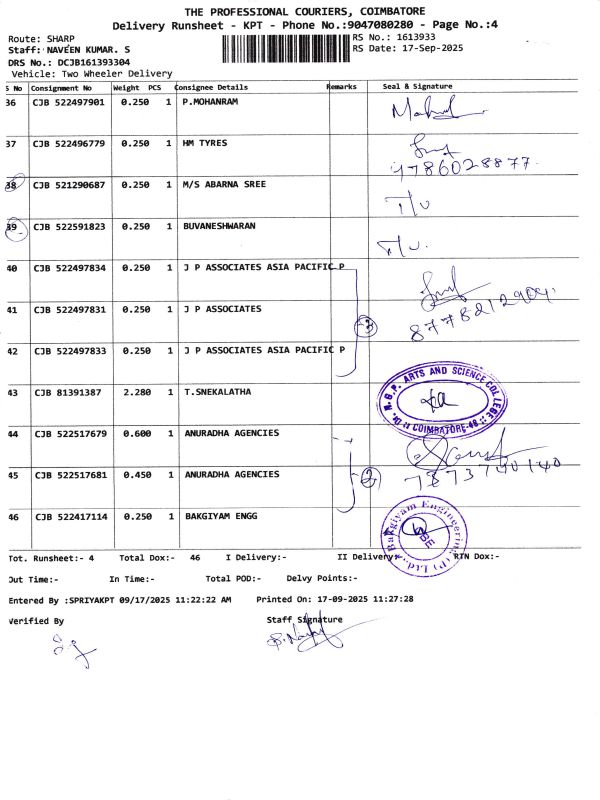 THE PROFESSIONAL COURIERS, COIMBATORE
Delivery Runsheet - KPT - Phone No.:9047080280 - Page No.:4
Route: SHARP RS No.: 1613933
Staff: NAVEEN KUMAR. S RS Date: 17-Sep-2025
DRS No.: DCJB161393304
Vehicle: Two Wheeler Delivery
S No Consignment No Weight PCS Consignee Details Remarks Seal & Signature
36 CJB 522497901 0.250 1 P.MOHANRAM
37 CJB 522496779 0.250 1 HM TYRES
9786028877
38 CJB 521290687 0.250 1 M/S ABARNA SREE
39 CJB 522591823 0.250 1 BUVANESHWARAN
40 CJB 522497834 0.250 1 J P ASSOCIATES ASIA PACIFIC P
8778212904
41 CJB 522497831 0.250 1 J P ASSOCIATES 3
42 CJB 522497833 0.250 1 J P ASSOCIATES ASIA PACIFIC P
43 CJB 81391387 2.280 1 T.SNEKALATHA Dr. N.G.P. ARTS AND SCIENCE COLLEGE COIMBATORE-48
44 CJB 522517679 0.600 1 ANURADHA AGENCIES
45 CJB 522517681 0.450 1 ANURADHA AGENCIES 2 7373740140
46 CJB 522417114 0.250 1 BAKGIYAM ENGG Bakgiyam Engineering (P) Ltd., BE
Tot. Runsheet:- 4 Total Dox:- 46 I Delivery:- II Delivery:- RTN Dox:-
Out Time:- In Time:- Total POD:- Delvy Points:-
Entered By :SPRIYAKPT 09/17/2025 11:22:22 AM Printed On: 17-09-2025 11:27:28
Verified By Staff Signature